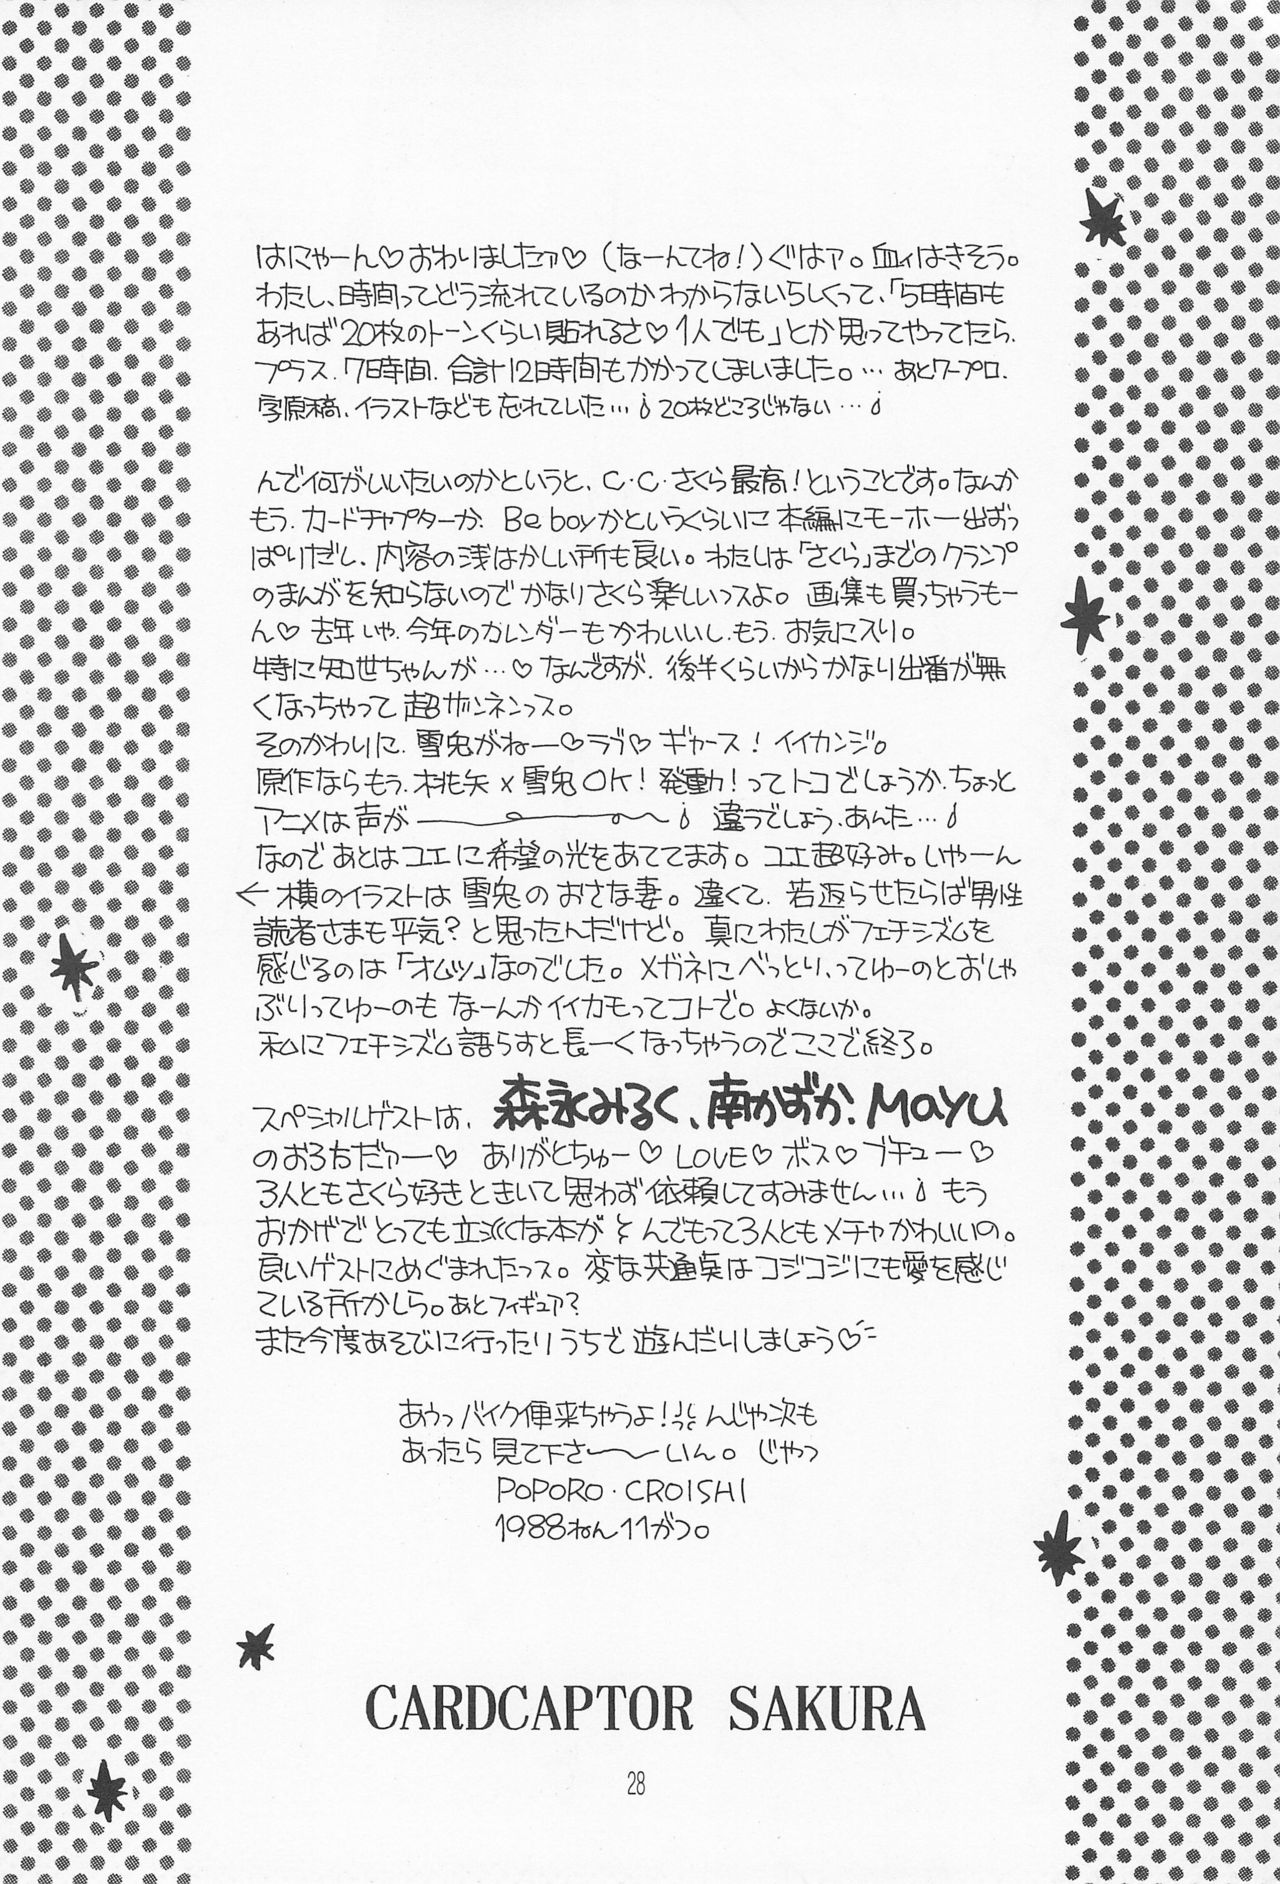 はにゃーん♡おわりましたァ♡(なーんてね!)ぐはァ。血ィはきそう。
わたし、時間ってどう流れているのかわからないらしくって、「5時間も
あれば20枚のトーンくらい貼れるさ♡1人でも」とか思ってやってたら、
プラス、7時間、合計12時間もかかってしまいました。…あとワープロ、
字原稿、イラストなども忘れていた… 20枚どころじゃない…

んで何がいいたいのかというと、C・C・さくら最高!ということです。なんか
もう、カードチャプターか、Be boyかというくらいに本編にモーホー出ずっ
ぱりだし、内容の浅はかしい所も良い。わたしは「さくら」までのクランプ
のまんがを知らないのでかなりさくら楽しいっスよ。画集も買っちゃうもー
ん♡去年いや、今年のカレンダーもかわいいし、もう、お気に入り。
特に知世ちゃんが…♡なんですが、後半くらいからかなり出番が無
くなっちゃって超ザンネンっス。
そのかわりに、雪兎がねー♡ラブ♡ギャース!イイカンジ。
原作ならもう、桃矢×雪兎OK!発動!ってトコでしょうか、ちょっと
アニメは声が――――〜 違うでしょう、あんた…
なのであとはユエに希望の光をあててます。ユエ超好み。いやーん
←横のイラストは雪兎のおさな妻。違くて、若返らせたらば男性
読者さまも平気?と思ったんだけど。真にわたしがフェチシズムを
感じるのは「オムツ」なのでした。メガネにべっとり、ってゆーのとおしゃ
ぶりってゆーのもなーんかイイカモってコトで。よくないか。
私にフェチシズム語らすと長ーくなっちゃうのでここで終了。
スペシャルゲストは、森永みるく、南かずか、Mayu
のお3方だァー♡ありがとちゅー♡LOVE♡ボス♡ブチュー♡
3人ともさくら好きときいて思わず依頼してすみません… もう
おかげでとっても立派な本が とんでもって3人ともメチャかわいいの。
良いゲストにめぐまれたっス。変な共通点はコジコジにも愛を感じ
ている所かしら。あとフィギュア?
また今度あそびに行ったりうちで遊んだりしましょう♡
あうっバイク便来ちゃうよ!んじゃ次も
あったら見て下さ〜〜いん。じゃっ
POPORO・CROISHI
1988ねん11がつ。
CARDCAPTOR SAKURA
28